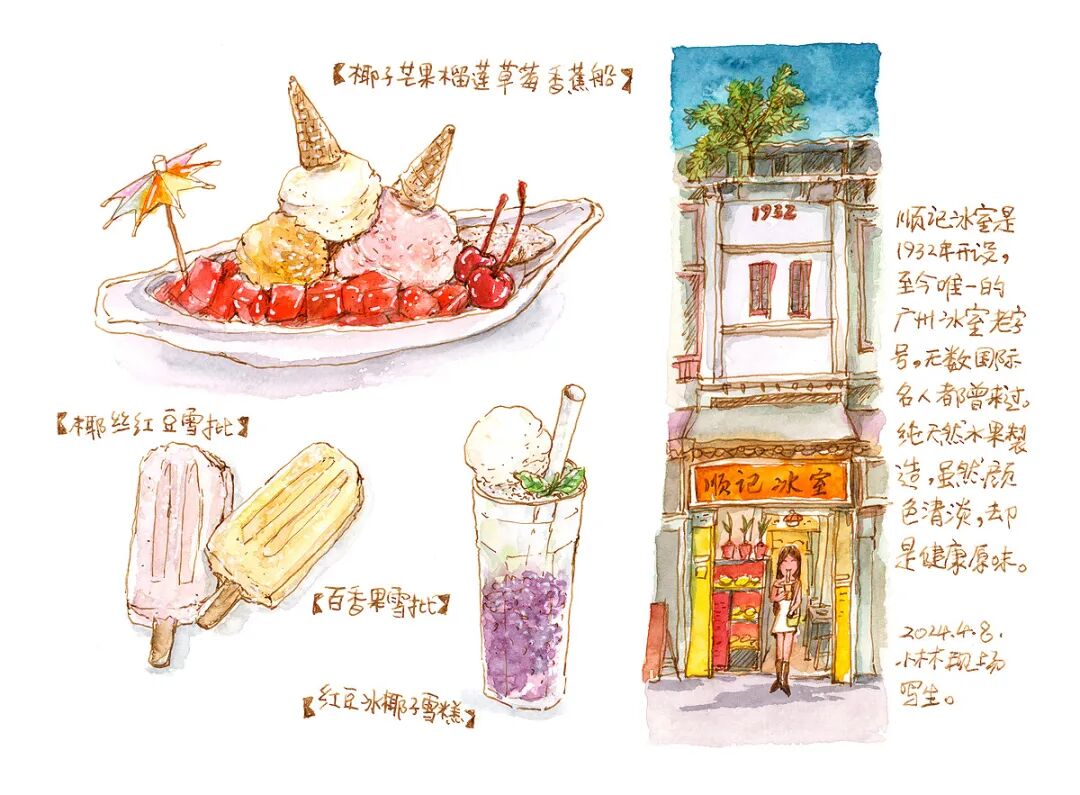 【椰子芒果榴莲草莓香蕉船】
【椰丝红豆雪批】
【百香果雪批】
【红豆冰椰子雪糕】
1932
顺记冰室
顺记冰室是
1932年开设，
至今唯一的
广州冰室老字
号，无数国际
名人都曾来过。
纯天然水果製
造，虽然颜
色清淡，却
是健康原味。
2024.4.8.
小林现场
写生。